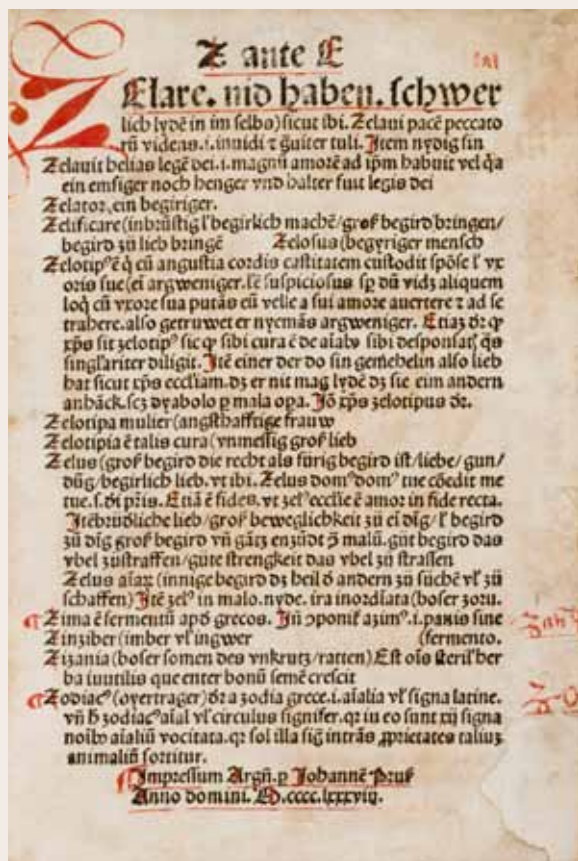 Z ante E
ZElare. nid haben. schwer
lich lydē in im selbs) sicut ibi. Zelaui pacē peccato
rū videns. i. inuidi ⁊ g̃uiter tuli. Item nydig sin
Zelauit helias legē dei. i. magnū amorē ad ip̄m habuit vel q̃a
ein emsiger noch henger vnd halter fuit legis dei
Zelator, ein begiriger.
Zelificare (inbrūstig l' begirlich machē/ groß begird bringen/
begird zū lieb bringē Zelosus (begyriger mensch
Zelotip⁹ ē q̇ cū angustia cordis castitatem custodit spōse l' vx
oris sue (ei argweniger. sē suspiciosus sp̄ dū vidȝ aliquem
loq̇ cū vxore sua putās eū velle a sui amore auertere ⁊ ad se
trahere. also getruwet er nyemās argweniger. Etiaȝ dr̄ ꝙ
xp̄s sit zelotip⁹ sic ꝙ sibi cura ē de aīabꝰ sibi desponsat q̄s
singl'ariter diligit. Itē einer der do sin gemēhelin also lieb
hat sicut xp̄s eccl'iam. dȝ er nit mag lydē dȝ sie eim andern
anhāck. scȝ dyabolo ꝑ mala opa. Iō xp̄s zelotipus dr̄.
Zelotipa mulier (angsthafftige frauw
Zelotipia ē talis cura (vnmessig groß lieb
Zelus (groß begird die recht als fūrig begird ist/ liebe/ gun/
dūg/ begirlich lieb. vt ibi. Zelus dom⁹ dom⁹ tue cōedit me
tue. s. dei pr̄is. Etiā ē fides. vt zel⁹ eccl'ie ē amor in fide recta.
Itē brūdliche lieb/ groß beweglichkeit zū ei dīg/ l' begird
zū dīg groß begird vn̄ gātz enzūdt ꝯ̄ malū. gūt begird das
vbel zūstraffen/ gute strengkeit das vbel zū straffen
Zelus aīaꝝ (innige begird dȝ heil d̄ andern zū sūchē vl' zū
schaffen) Itē zel⁹ in malo. nyde. ira inordīata (boser zoru.
Zima ē fermentū apd̄ grecos. Iñ ↄponiť azim⁹. i. panis sine
Zinziber (imber vl' ingwer (fermento.
Zizania (boser somen des vnkrutz/ ratten) Est oīs steril' her
ba iuutilis que enter bonū semē crescit
Zodiac⁹ (oyertrager) dr̄ a zodia grece. i. aīalia vl' signa latine.
vn̄ h̄ zodiac⁹ aīal vl' circulus signifer. qr̄ iu eo sunt xij signa
noībꝰ aīaliū vocitata. qr̄ sol illa sig̃ intrās ꝓprietates taliuȝ
animaliū sortitur.
Impressum Argn̄. ꝑ Johannē Pruß
Anno domini. M. cccc. lxxxviij.